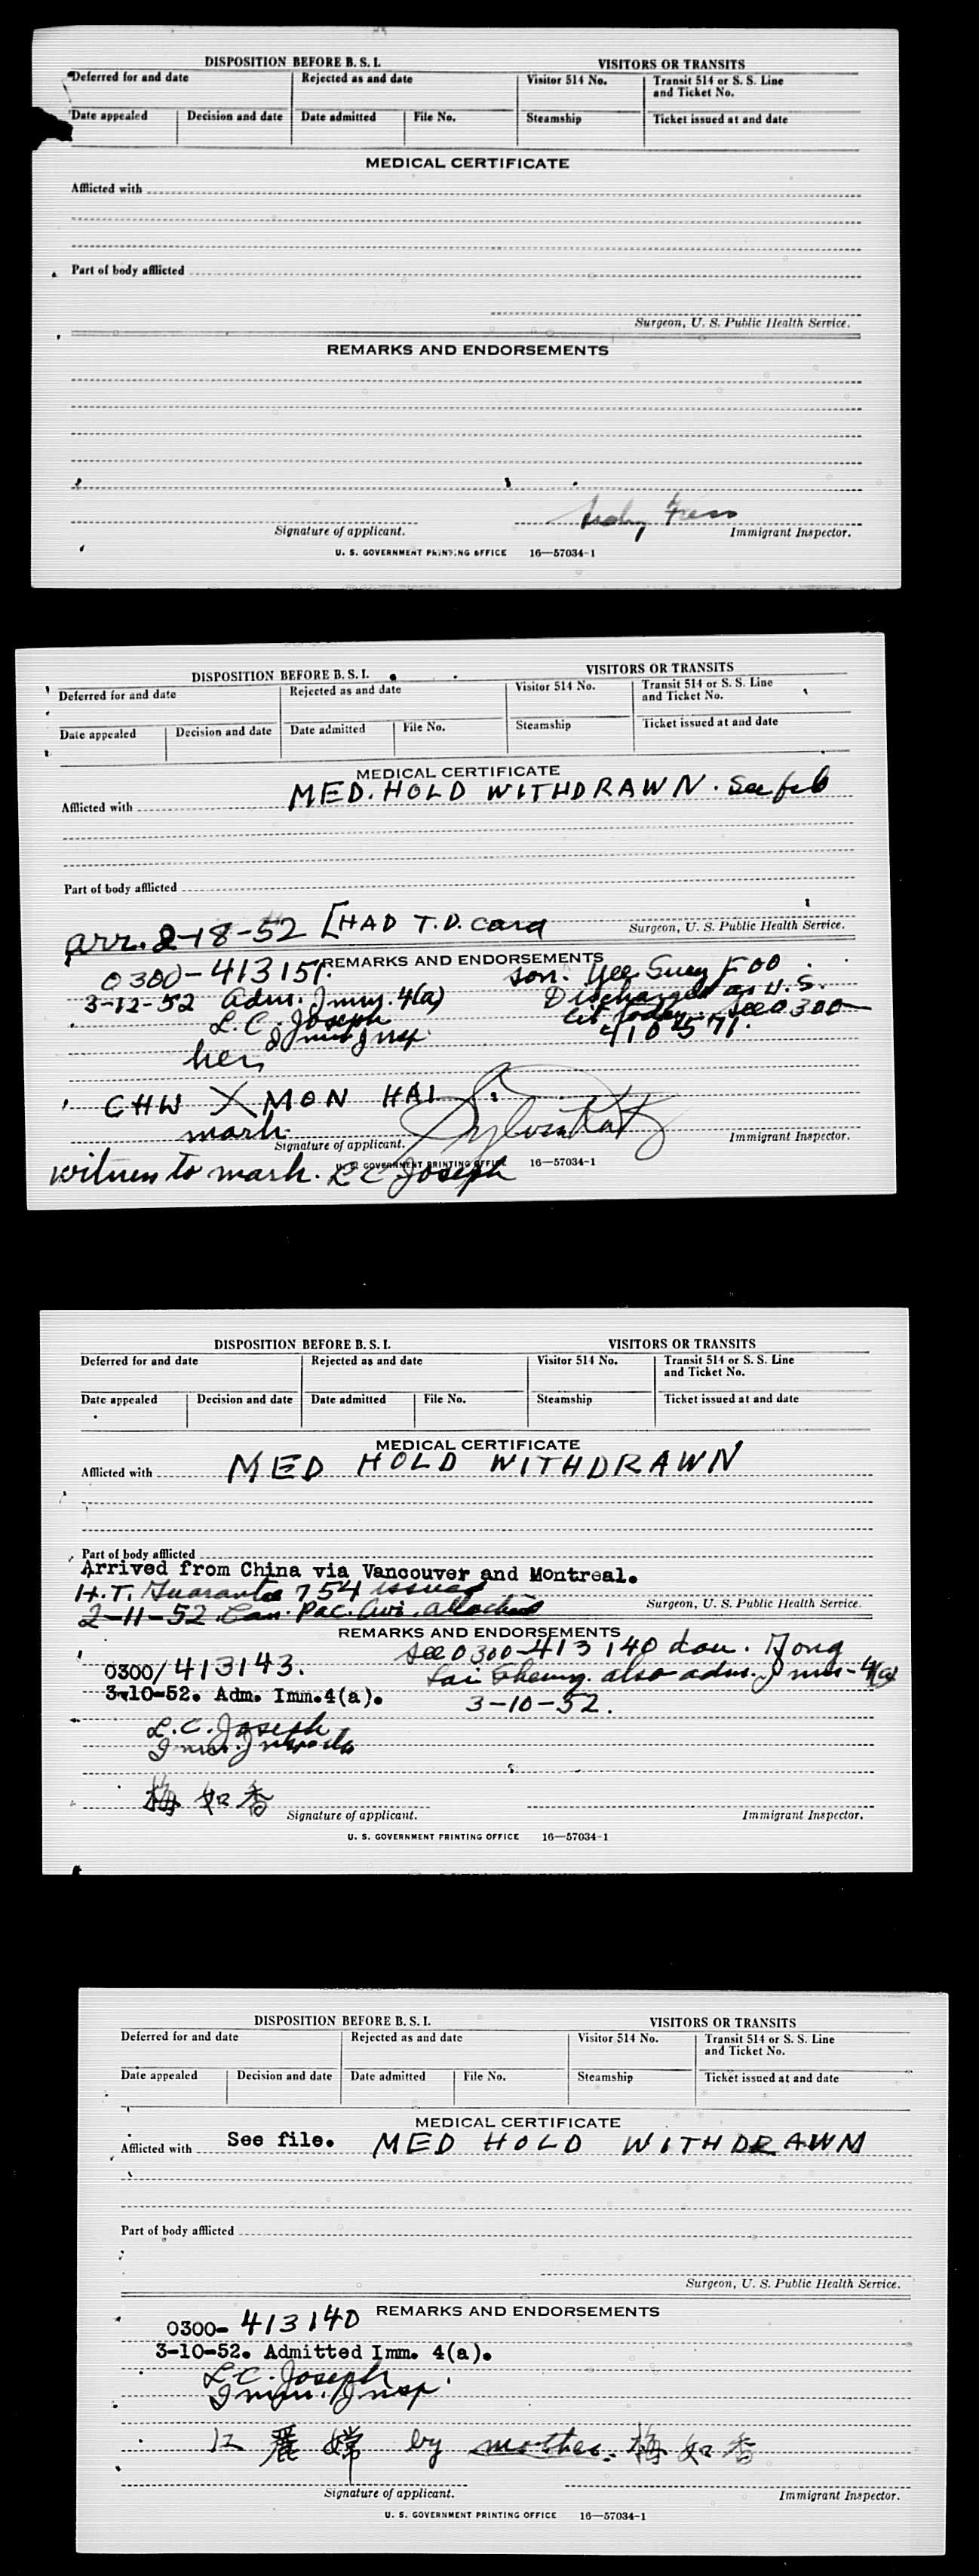 DISPOSITION BEFORE B. S. I. VISITORS OR TRANSITS
Deferred for and date Rejected as and date Visitor 514 No. Transit 514 or S. S. Line and Ticket No.
Date appealed Decision and date Date admitted File No. Steamship Ticket issued at and date
MEDICAL CERTIFICATE
Afflicted with
Part of body afflicted
Surgeon, U. S. Public Health Service.
REMARKS AND ENDORSEMENTS
Signature of applicant. Immigrant Inspector.
U. S. GOVERNMENT PRINTING OFFICE 16—57034-1
DISPOSITION BEFORE B. S. I. VISITORS OR TRANSITS
Deferred for and date Rejected as and date Visitor 514 No. Transit 514 or S. S. Line and Ticket No.
Date appealed Decision and date Date admitted File No. Steamship Ticket issued at and date
MEDICAL CERTIFICATE
Afflicted with MED. HOLD WITHDRAWN. See file
Part of body afflicted
arr. 2-18-52 [HAD T.D. card Surgeon, U. S. Public Health Service.
REMARKS AND ENDORSEMENTS
0300-413151. son. Yee Suey Foo
3-12-52 Adm. Imm. 4(a) Discharged as U.S.
L.C. Joseph Cit today. See 0300-
Imm Insp 410571.
her
CHW X MON HAI
mark
Signature of applicant. Sylvia Katz Immigrant Inspector.
U. S. GOVERNMENT PRINTING OFFICE 16—57034-1
witness to mark. L C Joseph
DISPOSITION BEFORE B. S. I. VISITORS OR TRANSITS
Deferred for and date Rejected as and date Visitor 514 No. Transit 514 or S. S. Line and Ticket No.
Date appealed Decision and date Date admitted File No. Steamship Ticket issued at and date
MEDICAL CERTIFICATE
Afflicted with MED HOLD WITHDRAWN
Part of body afflicted
Arrived from China via Vancouver and Montreal.
H.T. Guarantee 754 issued
2-11-52 Can. Pac. attached Surgeon, U. S. Public Health Service.
REMARKS AND ENDORSEMENTS
See 0300-413140 dau. Gong
0300/413143. Lai Sheung also adm. Imm-4(a)
3-10-52. Adm. Imm.4(a). 3-10-52.
L.C. Joseph
梅如香
Signature of applicant. Immigrant Inspector.
U. S. GOVERNMENT PRINTING OFFICE 16—57034-1
DISPOSITION BEFORE B. S. I. VISITORS OR TRANSITS
Deferred for and date Rejected as and date Visitor 514 No. Transit 514 or S. S. Line and Ticket No.
Date appealed Decision and date Date admitted File No. Steamship Ticket issued at and date
MEDICAL CERTIFICATE
Afflicted with See file. MED HOLD WITHDRAWN
Part of body afflicted
Surgeon, U. S. Public Health Service.
REMARKS AND ENDORSEMENTS
0300-413140
3-10-52. Admitted Imm. 4(a).
L.C. Joseph
Imm. Insp.
江麗嫦 by mother. 梅如香
Signature of applicant. Immigrant Inspector.
U. S. GOVERNMENT PRINTING OFFICE 16—57034-1